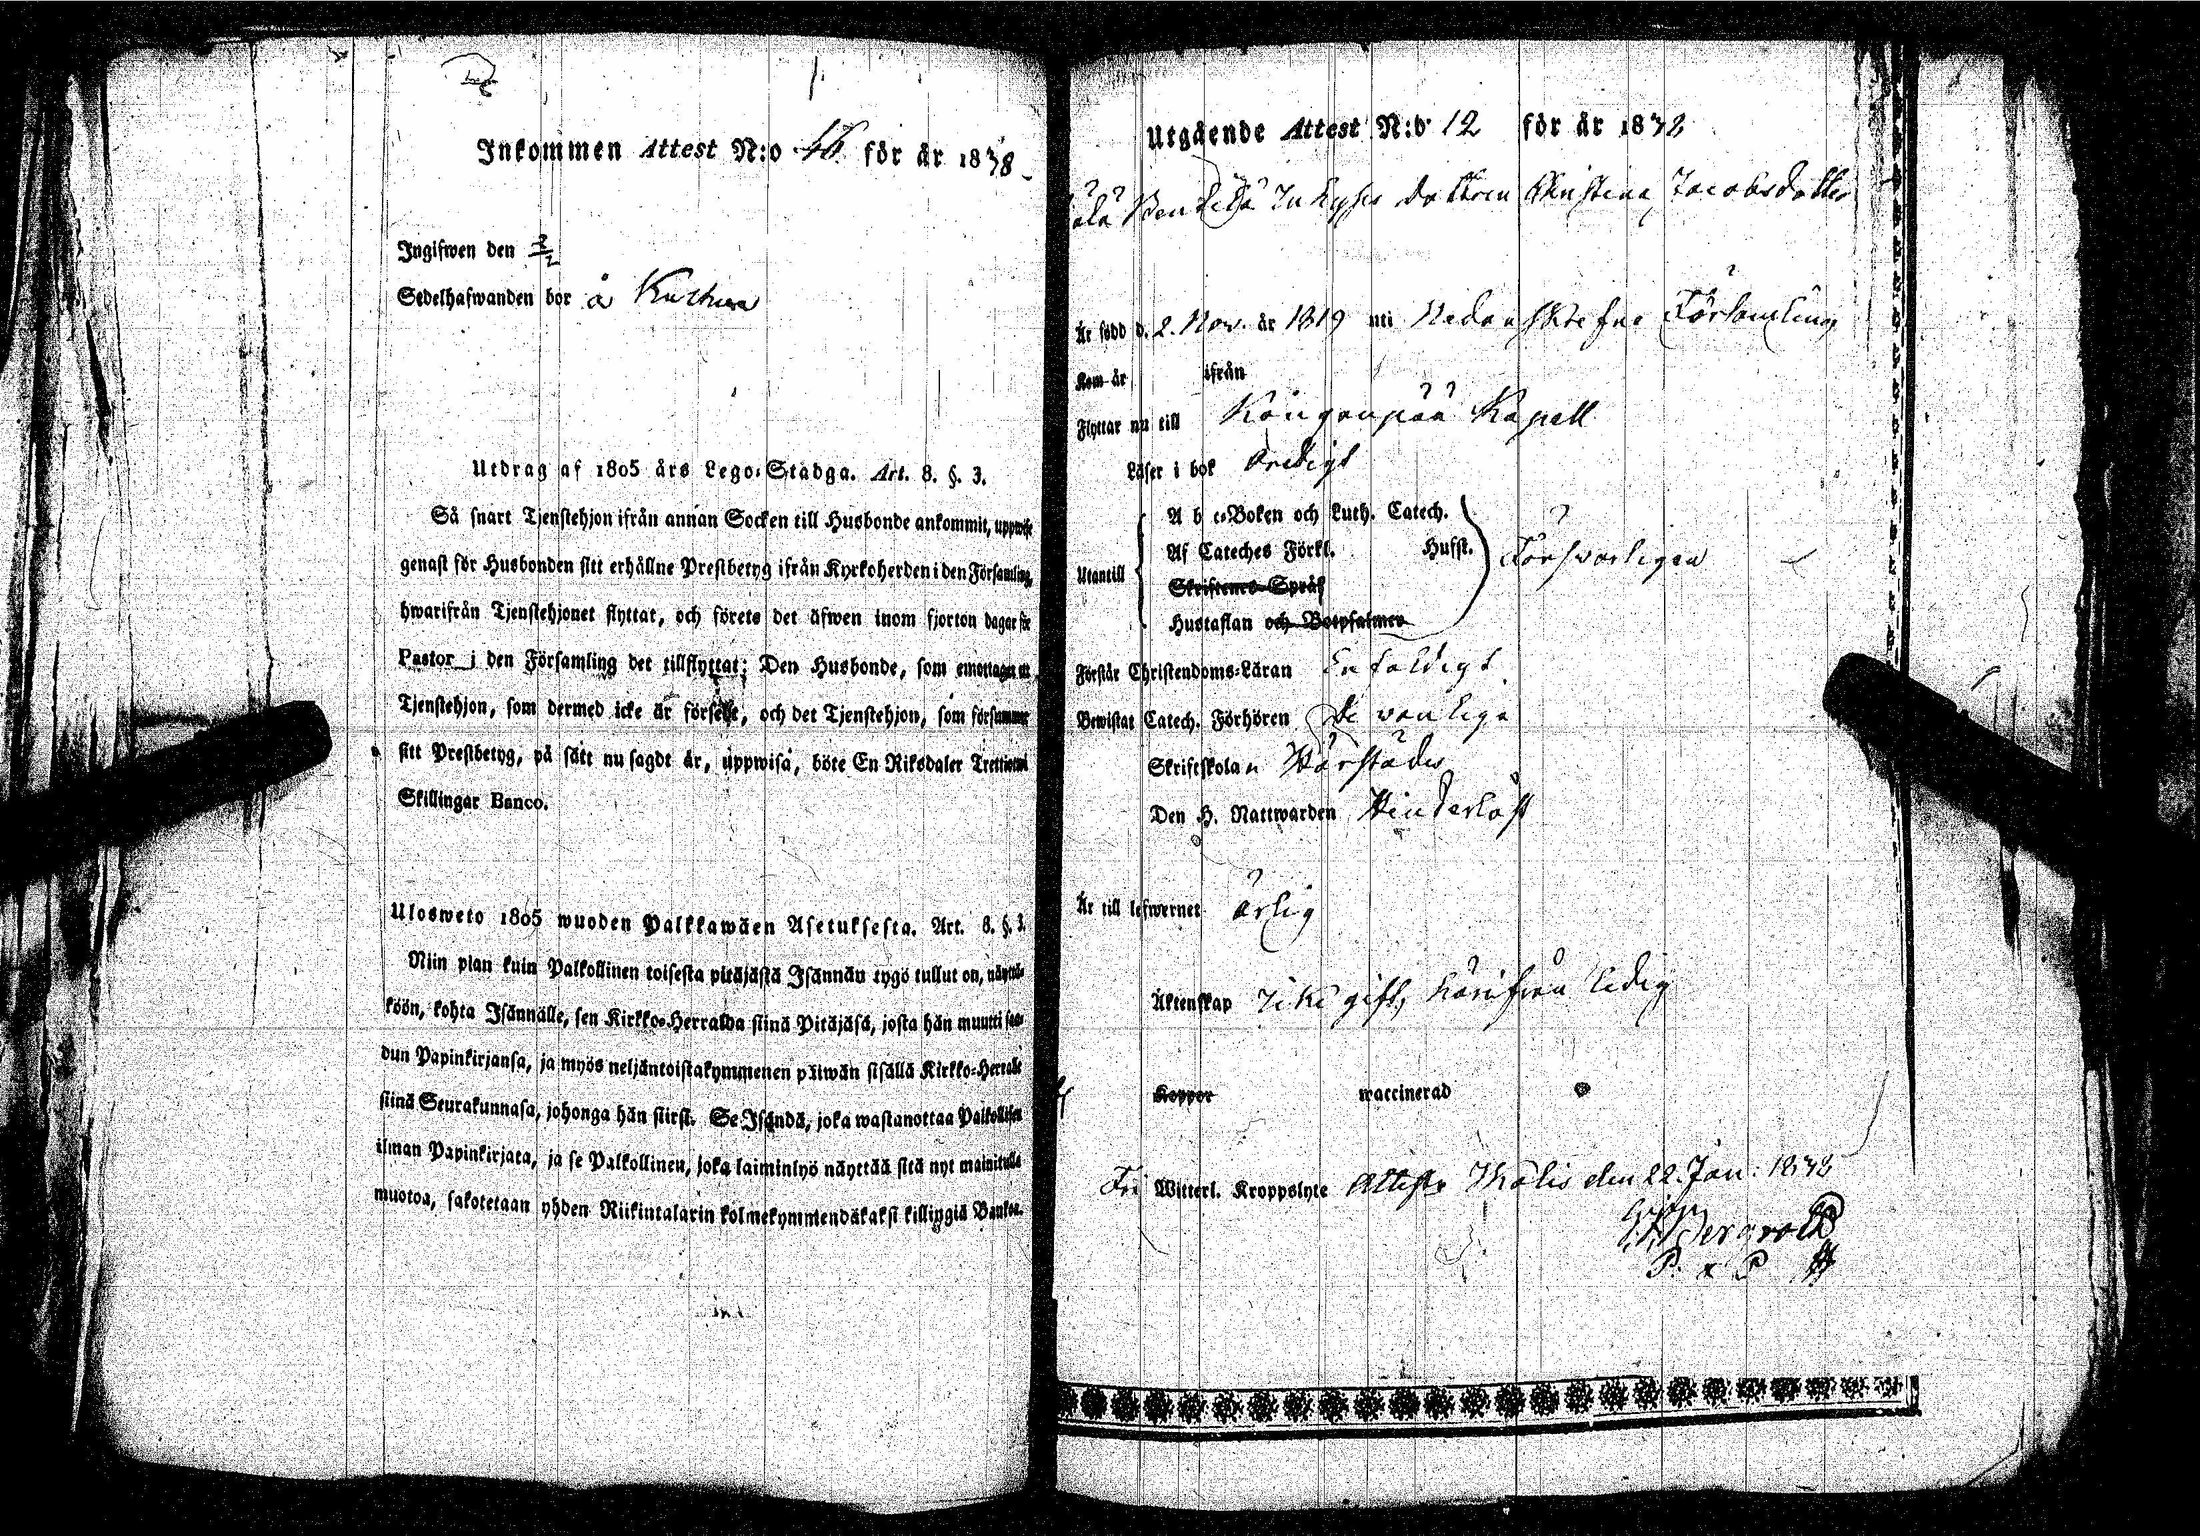 Inkommen Attest N:o 46 för år 1838
Ingifwen den 3/2
Sedelhafwanden bor å
Utdrag af 1805 års Lego-Stadga. Art. 8. §. 3.
Så snart Tjenstehjon ifrån annan Socken till Husbonde ankommit, uppwise
genast för Husbonden sitt erhållne Prestbetyg ifrån Kyrkoherden i den Församling,
hwarifrån Tjenstehjonet flyttat, och förete det äfwen inom fjorton dagar för
Pastor i den Församling det tillflyttat: Den Husbonde, som emottager ett
Tjenstehjon, som dermed icke är försedt, och det Tjenstehjon, som försummar
sitt Prestbetyg, på sätt nu sagdt är, uppwisa, böte En Riksdaler Trettiotwå
Skillingar Banco.
Ulosweto 1805 wuoden Palkkawäen Asetuksesta. Art. 8. §. 3.
Niin pian kuin Palkollinen toisesta pitäjästä Isännän tygö tullut on, näyttä-
köön, kohta Isännälle, sen Kirkko-Herralda siinä Pitäjäsä, josta hän muutti saa-
dun Papinkirjansa, ja myös neljäntoistakymmenen päiwän sisällä Kirkko-Herralle
siinä Seurakunnasa, johonga hän siirsi. Se Isändä, joka wastanottaa Palkollisen
ilman Papinkirjata, ja se Palkollinen, joka laiminlyö näyttää sitä nyt mainitulla
muotoa, sakotetaan yhden Riikintalarin kolmekymmendäkaksi killingiä Bankoa.
Utgående Attest N:o 12 för år 1838
dottren Christina Jacobsdotter
Är född d. 2. Nov. år 1819 uti Nedanskrefne Församling
Kom år ifrån
Flyttar nu till Kångonpää Kapell
Läser i bok ordigt
A b c-Boken och Luth. Catech.
Af Cateches Förkl. Hufst. Försvarligen
Utantill
Skriftenes Språk
Hustaflan och Botpsalmer
Förstår Christendoms-Läran Enfaldigt
Bewistat Catech. Förhören De vanliga
Skriftskolan Härstädes
Den H. Nattwarden Hinderlöst
Är till lefwernet ärlig
Äktenskap icke gift, härifrån ledig
Koppor waccinerad
Fri Witterl. Kroppslyte Attestr den 22. Jan. 1838
Bergroth
P. x P